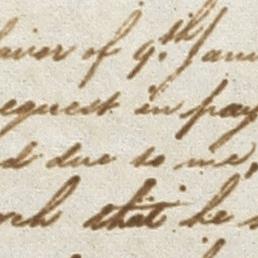 favor of 9th Janu
request in pay
d due to me,
that he